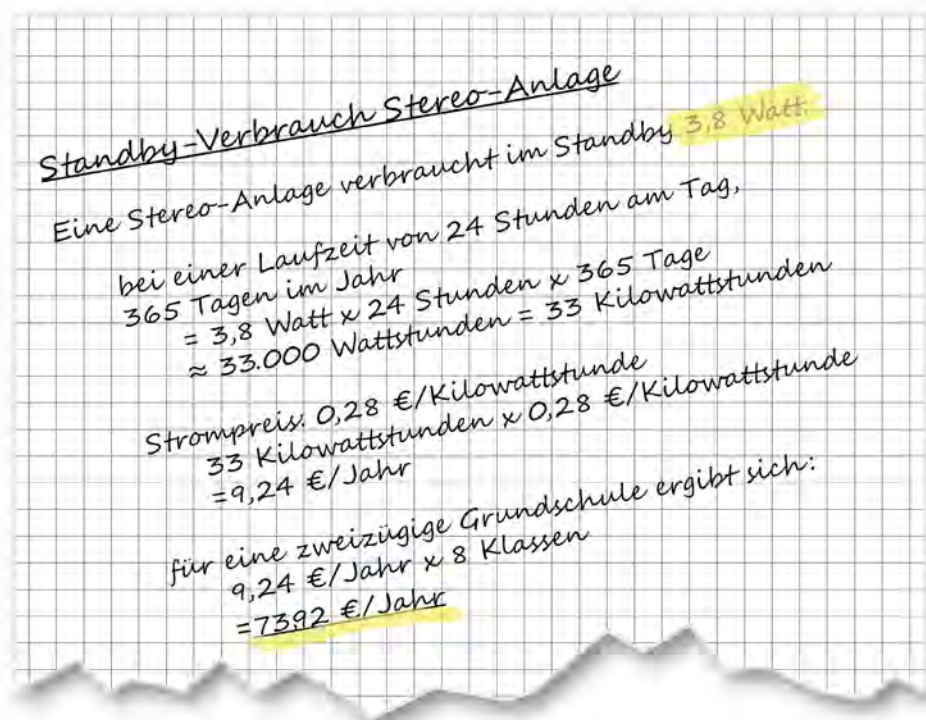 Standby-Verbrauch Stereo-Anlage
Eine Stereo-Anlage verbraucht im Standby 3,8 Watt.
bei einer Laufzeit von 24 Stunden am Tag,
365 Tagen im Jahr
= 3,8 Watt x 24 Stunden x 365 Tage
≈ 33.000 Wattstunden = 33 Kilowattstunden
Strompreis: 0,28 €/Kilowattstunde
33 Kilowattstunden x 0,28 €/Kilowattstunde
=9,24 €/Jahr
für eine zweizügige Grundschule ergibt sich:
9,24 €/Jahr x 8 Klassen
=73,92 €/Jahr